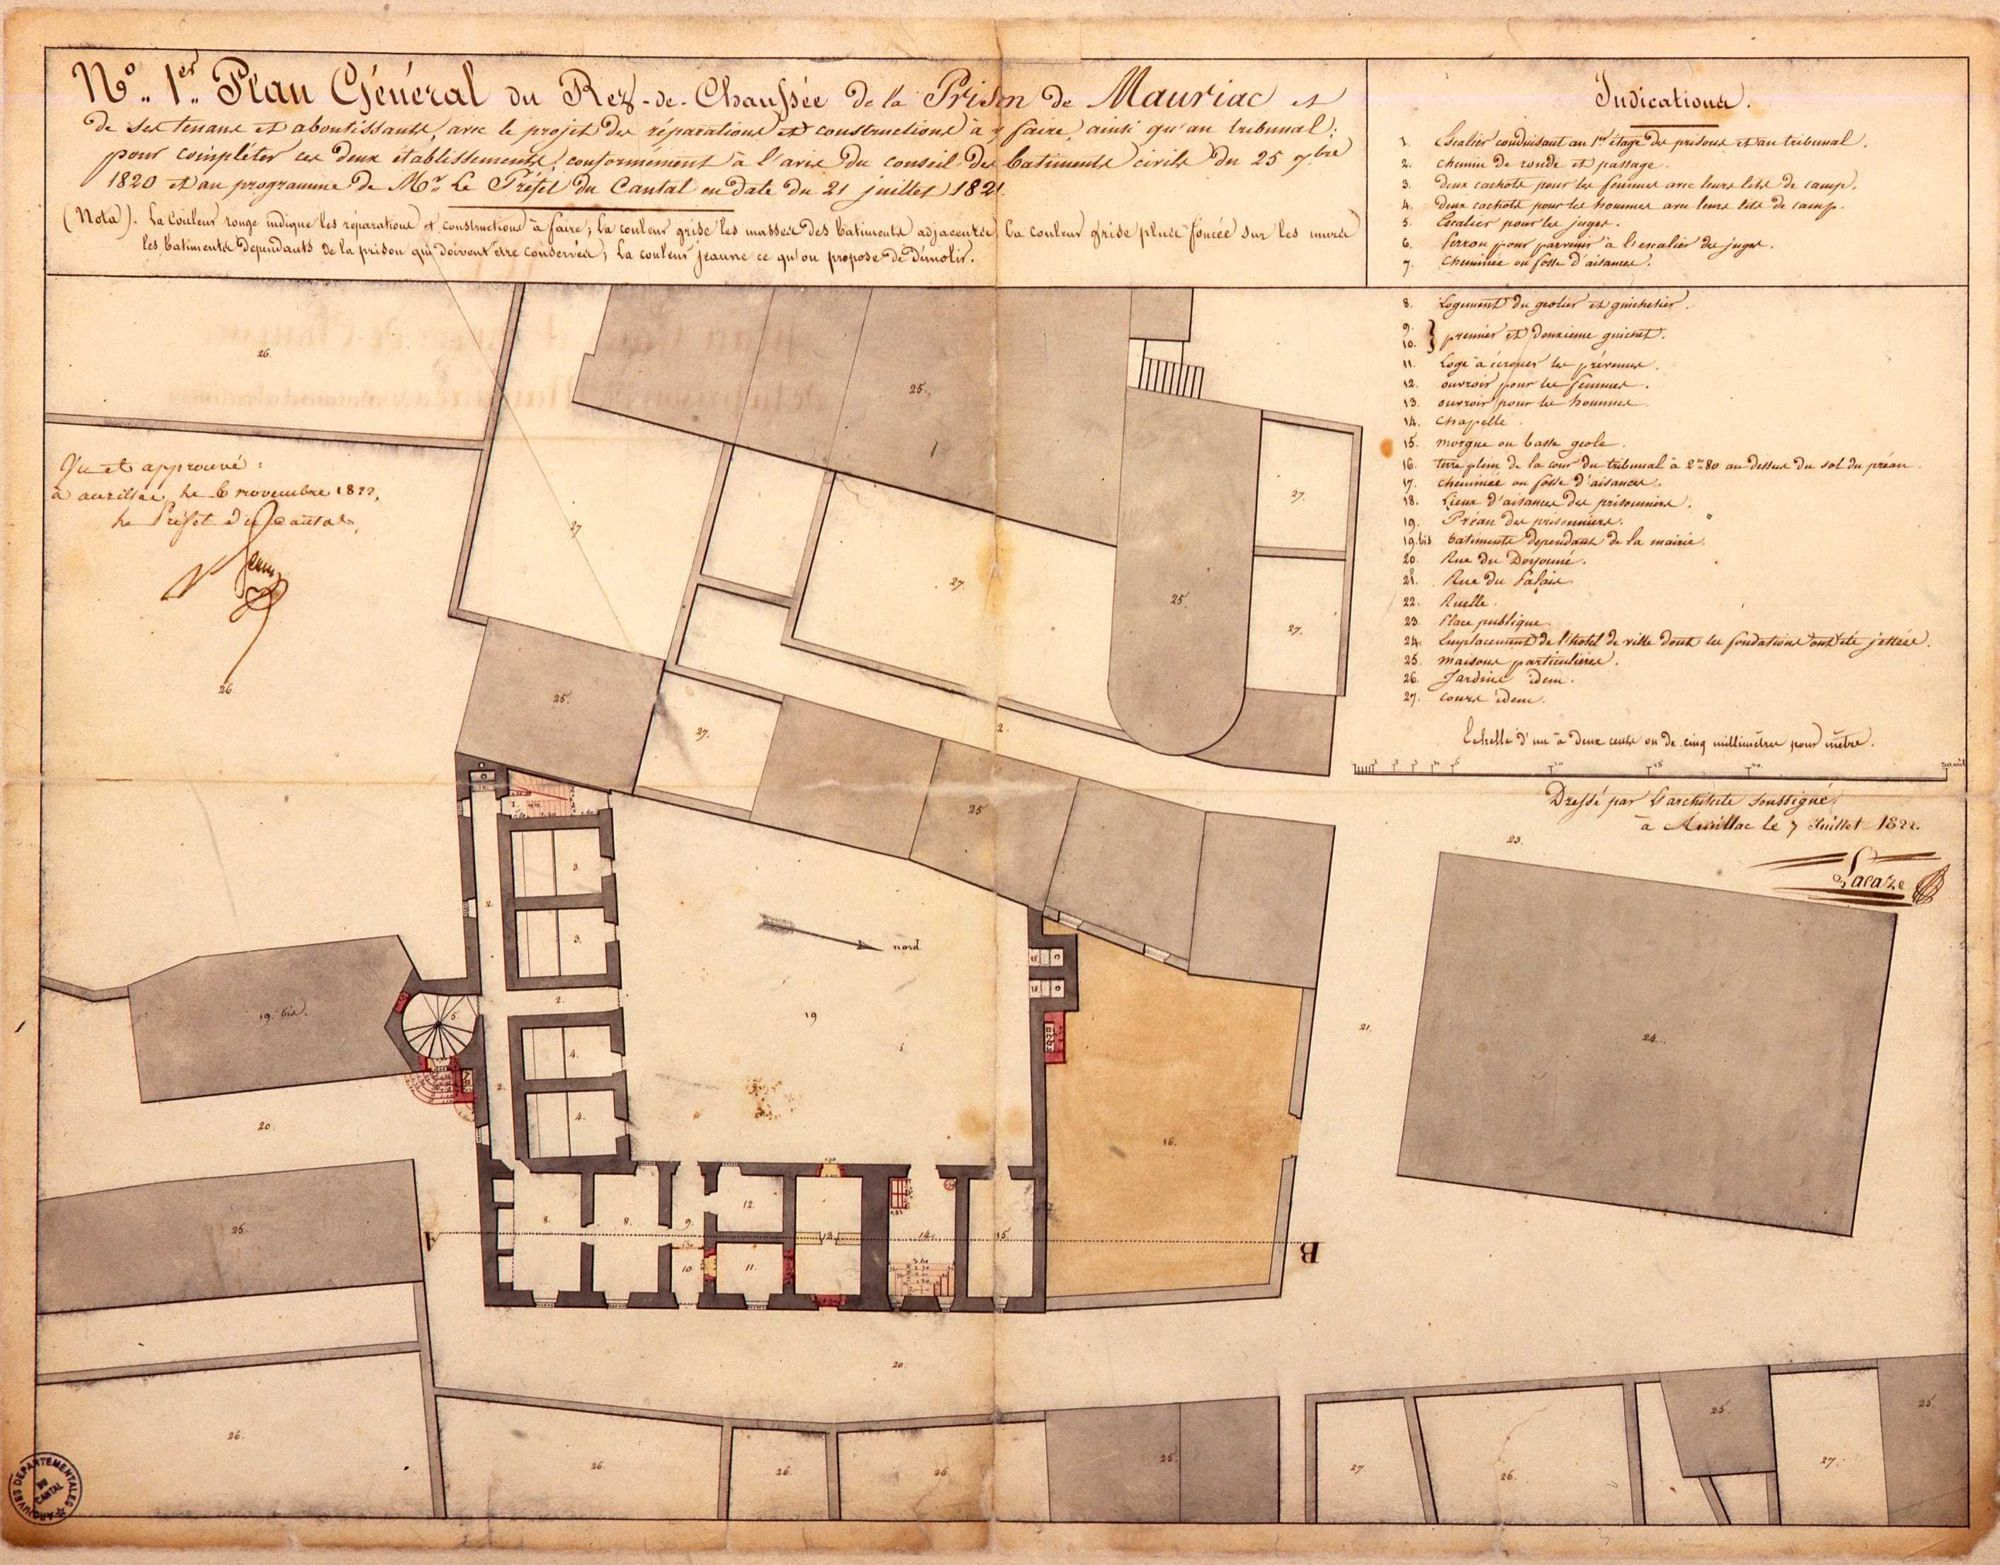 N.º 1.er Plan Général du Rez-de-Chaussée de la Prison de Mauriac et
de ses tenans et aboutissants, avec le projet des réparations et constructions à y faire, ainsi qu'au tribunal;
pour compléter ces deux établissements, conformément à l'avis du conseil des batiments civils du 25 7.bre
1820 et au programme de Mr. Le Préfet du Cantal en date du 21 juillet 1821.
(Nota). La Couleur rouge indique les réparations et constructions à faire; la couleur grise les masses des batiments adjacentes; la couleur grise plus foncée sur les murs
les batiments dependants de la prison qui doivent être conservés; La couleur jeaune ce qu'on propose de démolir.
Indications.
1. Escalier conduisant au 1er étage des prisons et au tribunal.
2. chemin de ronde et passage.
3. deux cachots pour les femmes avec leurs lits de camp.
4. deux cachots pour les hommes avec leurs lits de camp.
5. Escalier pour les juges.
6. Perron pour parvenir à l'escalier des juges.
7. Cheminée ou fosse d'aisances.
8. Logement du geolier et guichetier.
9.
10. } premier et deuxieme guichet.
11. Loge à écrouer les prévenus.
12. ouvroir pour les femmes.
13. ouvroir pour les hommes.
14. Chapelle.
15. morgue ou basse geole.
16. terre plein de la cour du tribunal à 2.m80 au dessus du sol du préau.
17. cheminée ou fosse d'aisances.
18. Lieux d'aisances des prisonniers.
19. Préau des prisonniers.
19.bis batiments dependants de la mairie.
20. Rue du Doyonné.
21. Rue du Palais.
22. Ruelle.
23. Place publique.
24. Emplacement de l'hotel de ville dont les fondations ont été jettées.
25. maisons particulières.
26. Jardins idem.
27. cours idem.
Echelle d'un à deux cents ou de cinq millimètres pour mètre.
Dressé par l'architecte soussigné,
à Aurillac le 7 Juillet 1822.
Lacaze
Vu et approuvé:
à aurillac, le 6 novembre 1822,
le Préfet du Cantal,
26.
25.
27.
27.
27.
27.
25.
26.
25.
27.
2.
25.
23.
3.
2.
3.
nord
2.
19
19. bis.
5.
21.
24.
4.
2.
4.
16.
20.
25.
8.
8.
9.
12.
13.
14.
15.
10.
11.
A
B
20.
26.
26.
26.
26.
25.
27.
26.
25.
27.
25.
ARCHIVES DEPARTEMENTALES
DU
CANTAL